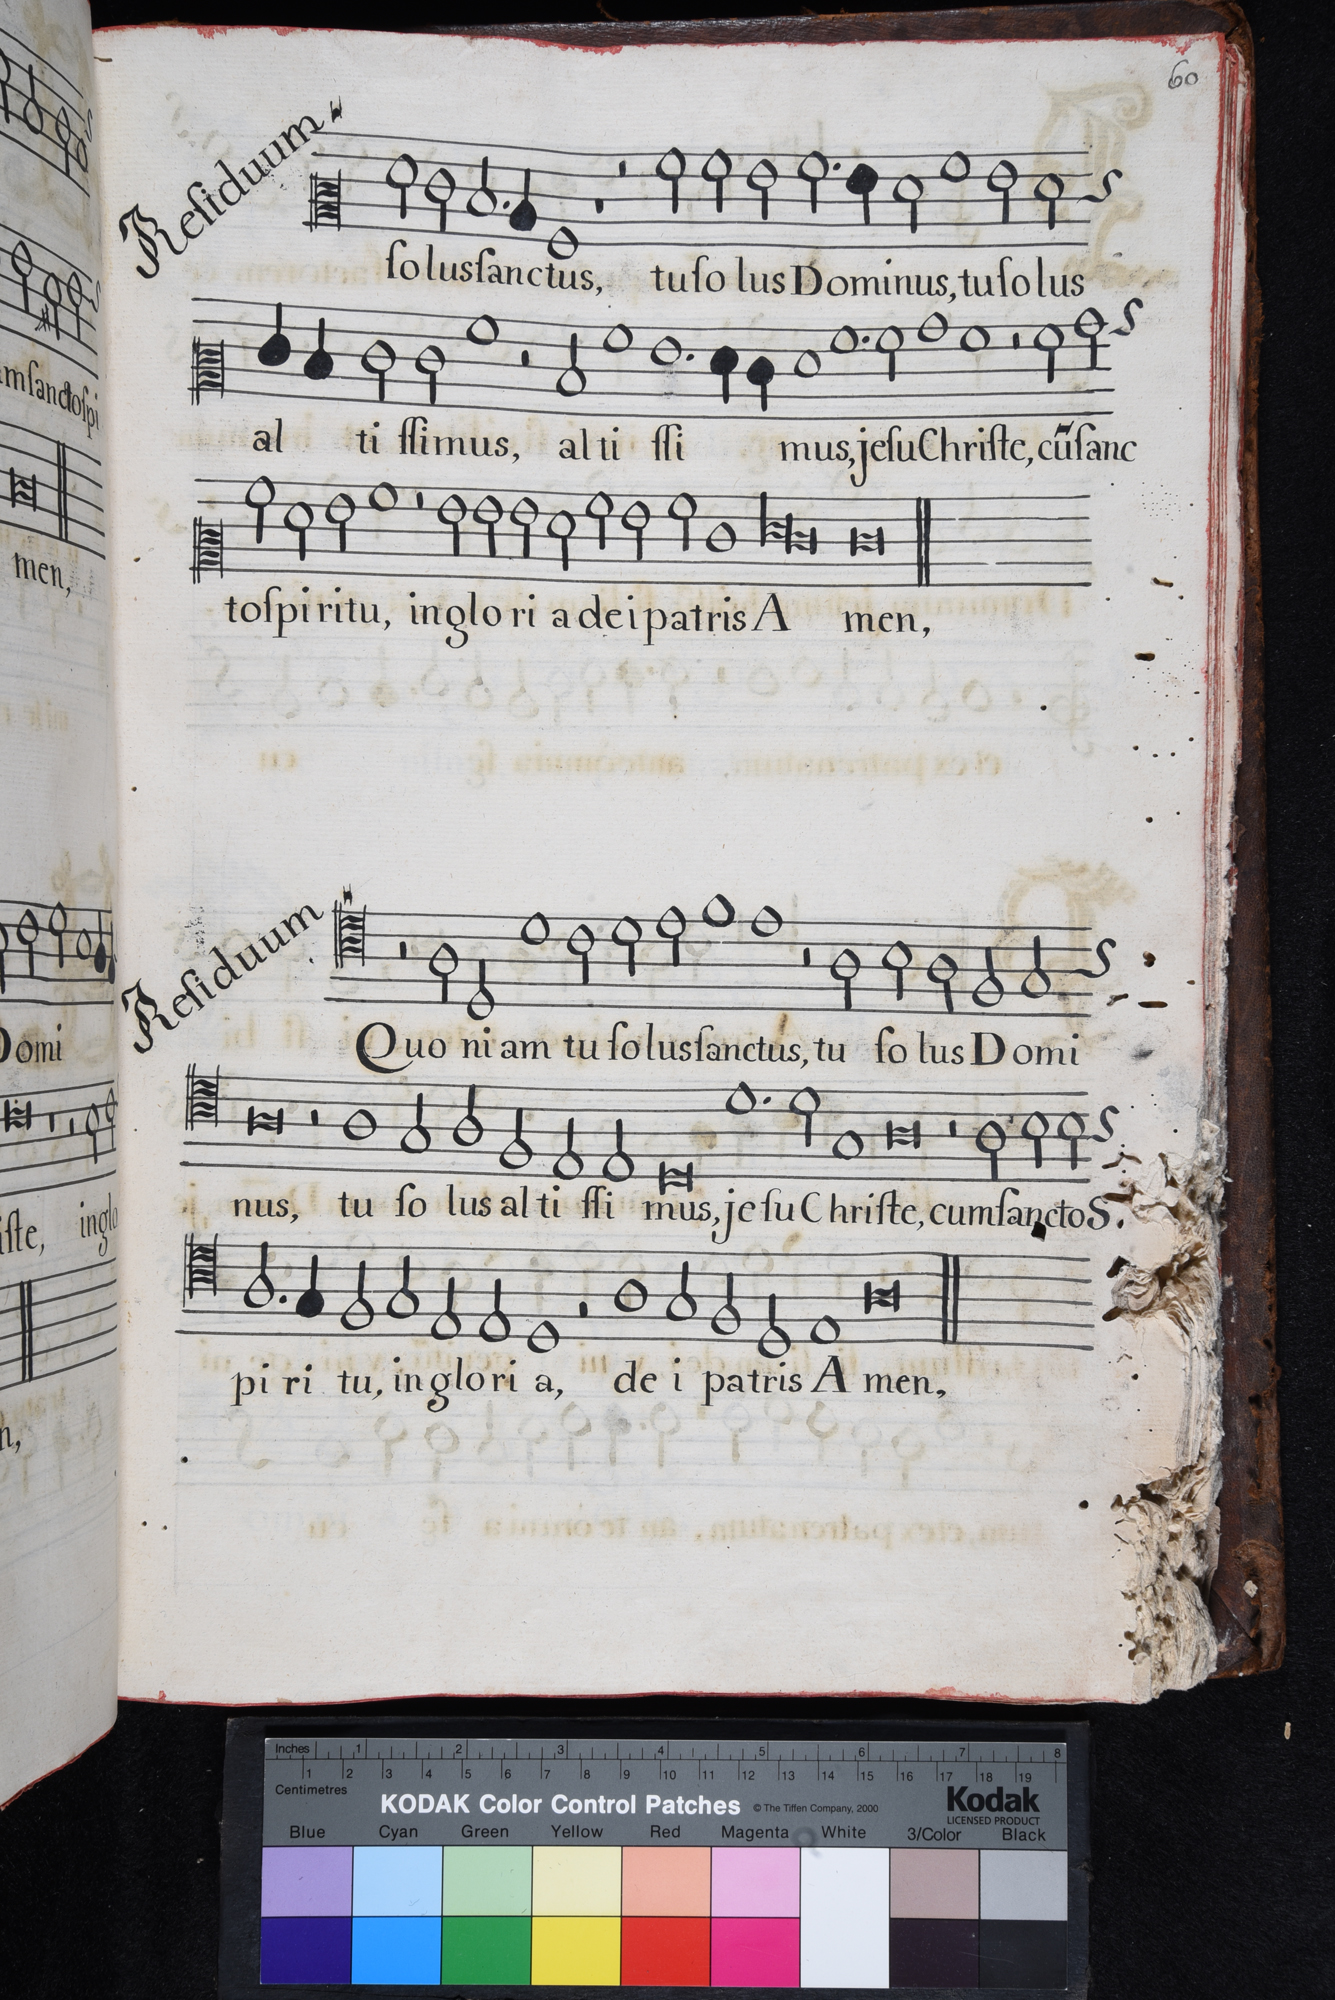 60
Residuum
solus sanctus, tu so lus Dominus, tu solus
al ti ssimus, al ti ssi mus, jesu Christe, cũ sanc
to spi ritu, in glo ri a dei patris A men,
Residuum
Quo ni am tu solus sanctus, tu so lus Domi
nus, tu so lus al ti ssi mus, je su Christe, cum sancto S.
pi ri tu, in glo ri a, de i patris A men,
men,
Domi
Inches 1 2 3 4 5 6 7 8
Centimetres 1 2 3 4 5 6 7 8 9 10 11 12 13 14 15 16 17 18 19
KODAK Color Control Patches © The Tiffen Company, 2000 Kodak
LICENSED PRODUCT
Blue Cyan Green Yellow Red Magenta White 3/Color Black